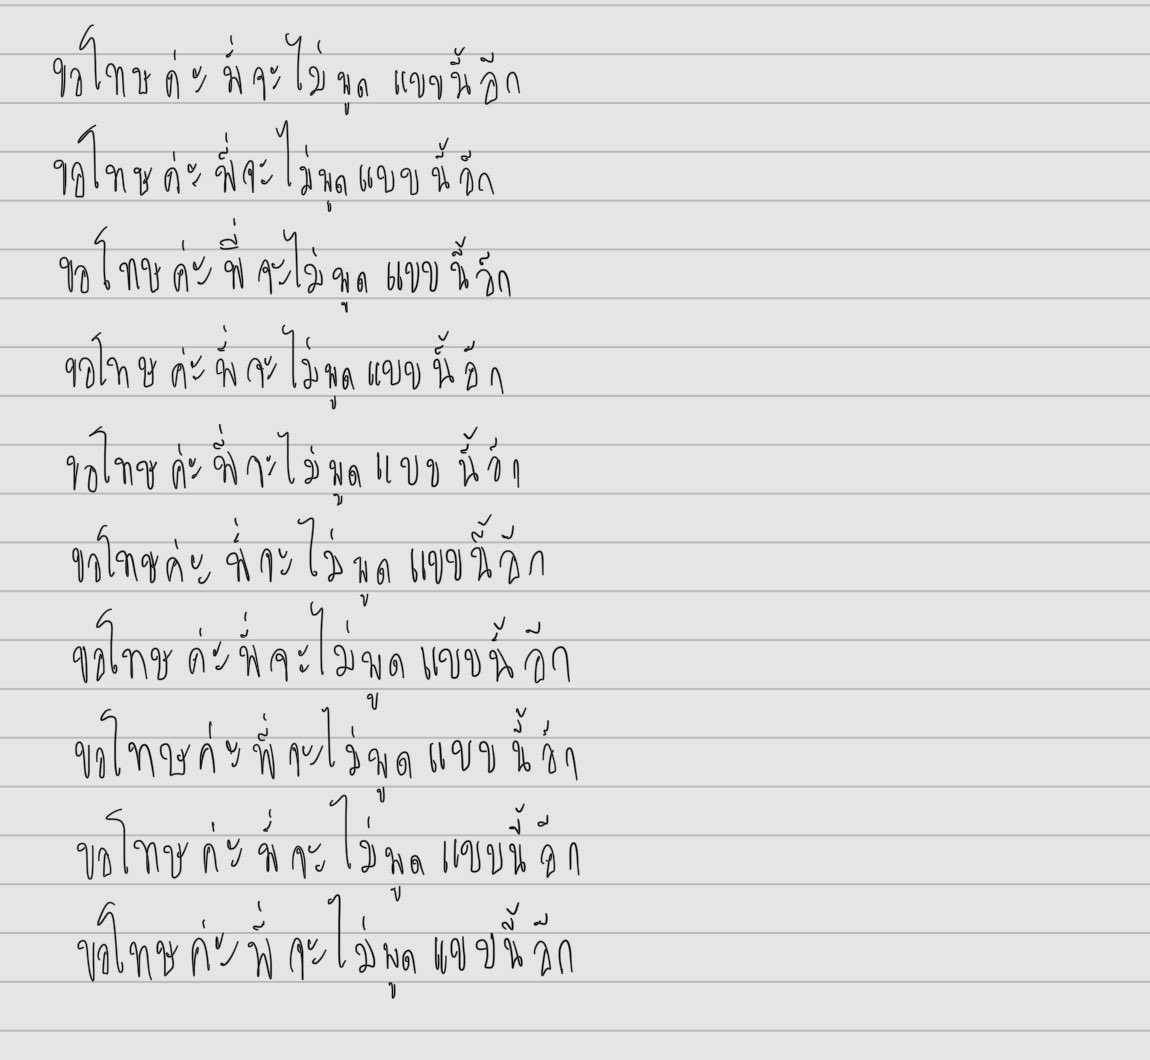 ขอโทษค่ะ พี่จะไม่พูด แบบนี้อีก
ขอโทษค่ะ พี่จะไม่พูดแบบนี้อีก
ขอโทษค่ะ พี่จะไม่พูด แบบนี้อีก
ขอโทษค่ะ พี่จะไม่พูดแบบนี้อีก
ขอโทษค่ะ พี่จะไม่พูด แบบนี้อีก
ขอโทษค่ะ พี่จะไม่พูด แบบนี้อีก
ขอโทษค่ะ พี่จะไม่พูด แบบนี้อีก
ขอโทษค่ะ พี่จะไม่พูด แบบนี้อีก
ขอโทษค่ะ พี่จะไม่พูด แบบนี้อีก
ขอโทษค่ะ พี่จะไม่พูด แบบนี้อีก